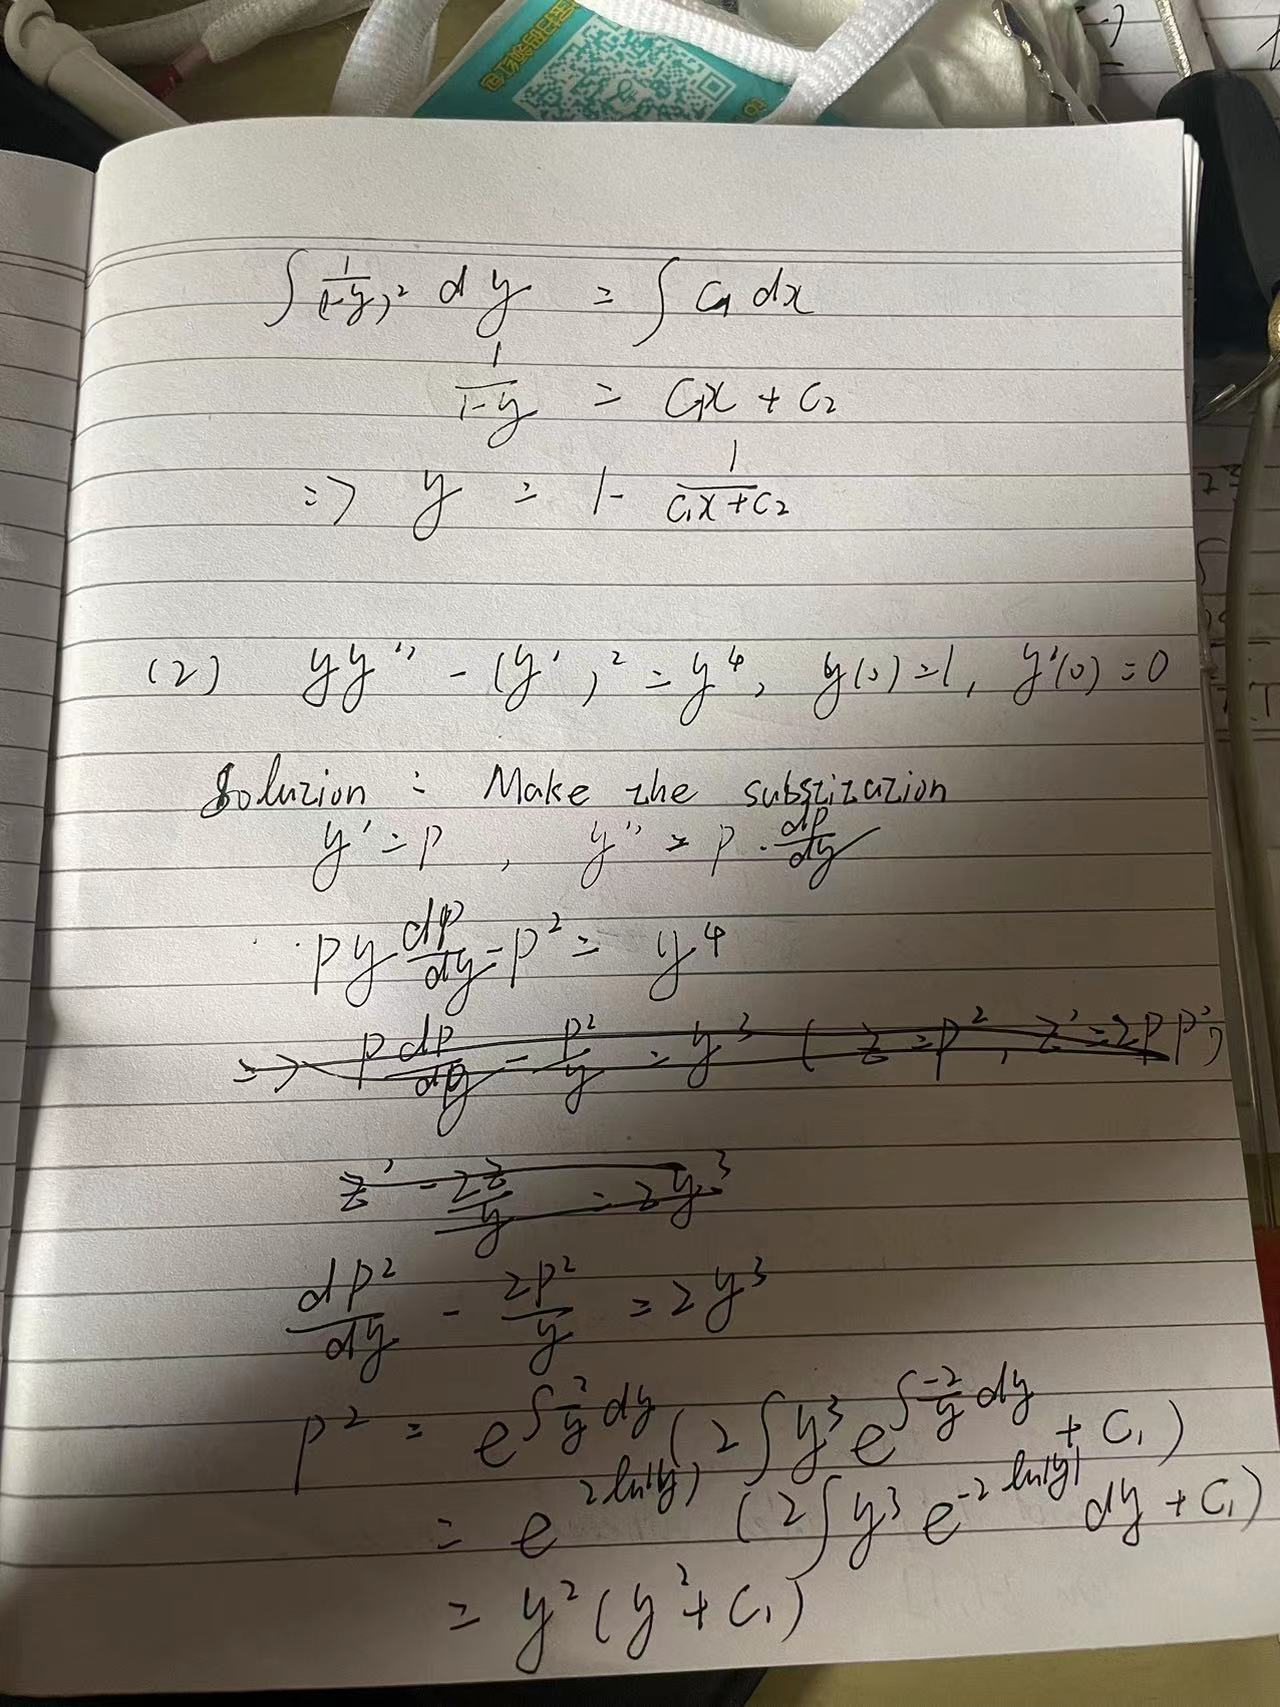 ∫ 1/(1-y)² dy = ∫ C₁ dx
1/(1-y) = C₁x + C₂
=> y = 1 - 1/(C₁x + C₂)
(2) yy'' - (y')² = y⁴, y(0)=1, y'(0)=0
Solution : Make the substitution
y' = p , y'' = p · dp/dy
py dp/dy - p² = y⁴
=> p dp/dy - p²/y = y³ ( z = p² , z' = 2pp')
z' - 2z/y = 2y³
dp²/dy - 2p²/y = 2y³
p² = e^(∫ 2/y dy) (2∫ y³ e^(∫ -2/y dy) + C₁)
= e^(2ln|y|) (2∫ y³ e^(-2 ln|y|) dy + C₁)
= y² (y² + C₁)